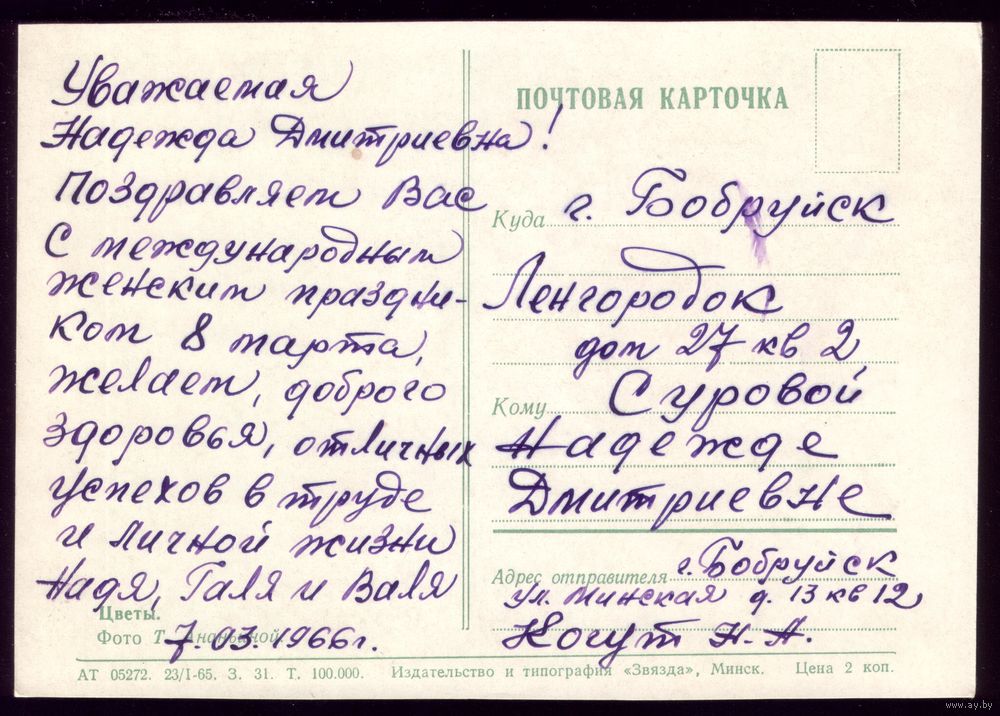 Уважаемая
Надежда Дмитриевна!
Поздравляем Вас
С международным
женским праздни-
ком 8 марта,
желаем, доброго
здоровья, отличных
успехов в труде
и личной жизни
Надя, Галя и Валя
7.03.1966г.
Цветы.
Фото Т. Ананьиной.
ПОЧТОВАЯ КАРТОЧКА
Куда г. Бобруйск
Ленгородок
дом 27 кв 2
Кому Суровой
Надежде
Дмитриевне
Адрес отправителя г. Бобруйск
ул. Минская д. 13 кв 12,
Когут Н. А.
АТ 05272. 23/I-65. З. 31. Т. 100.000. Издательство и типография «Звязда», Минск. Цена 2 коп.
www.ay.by